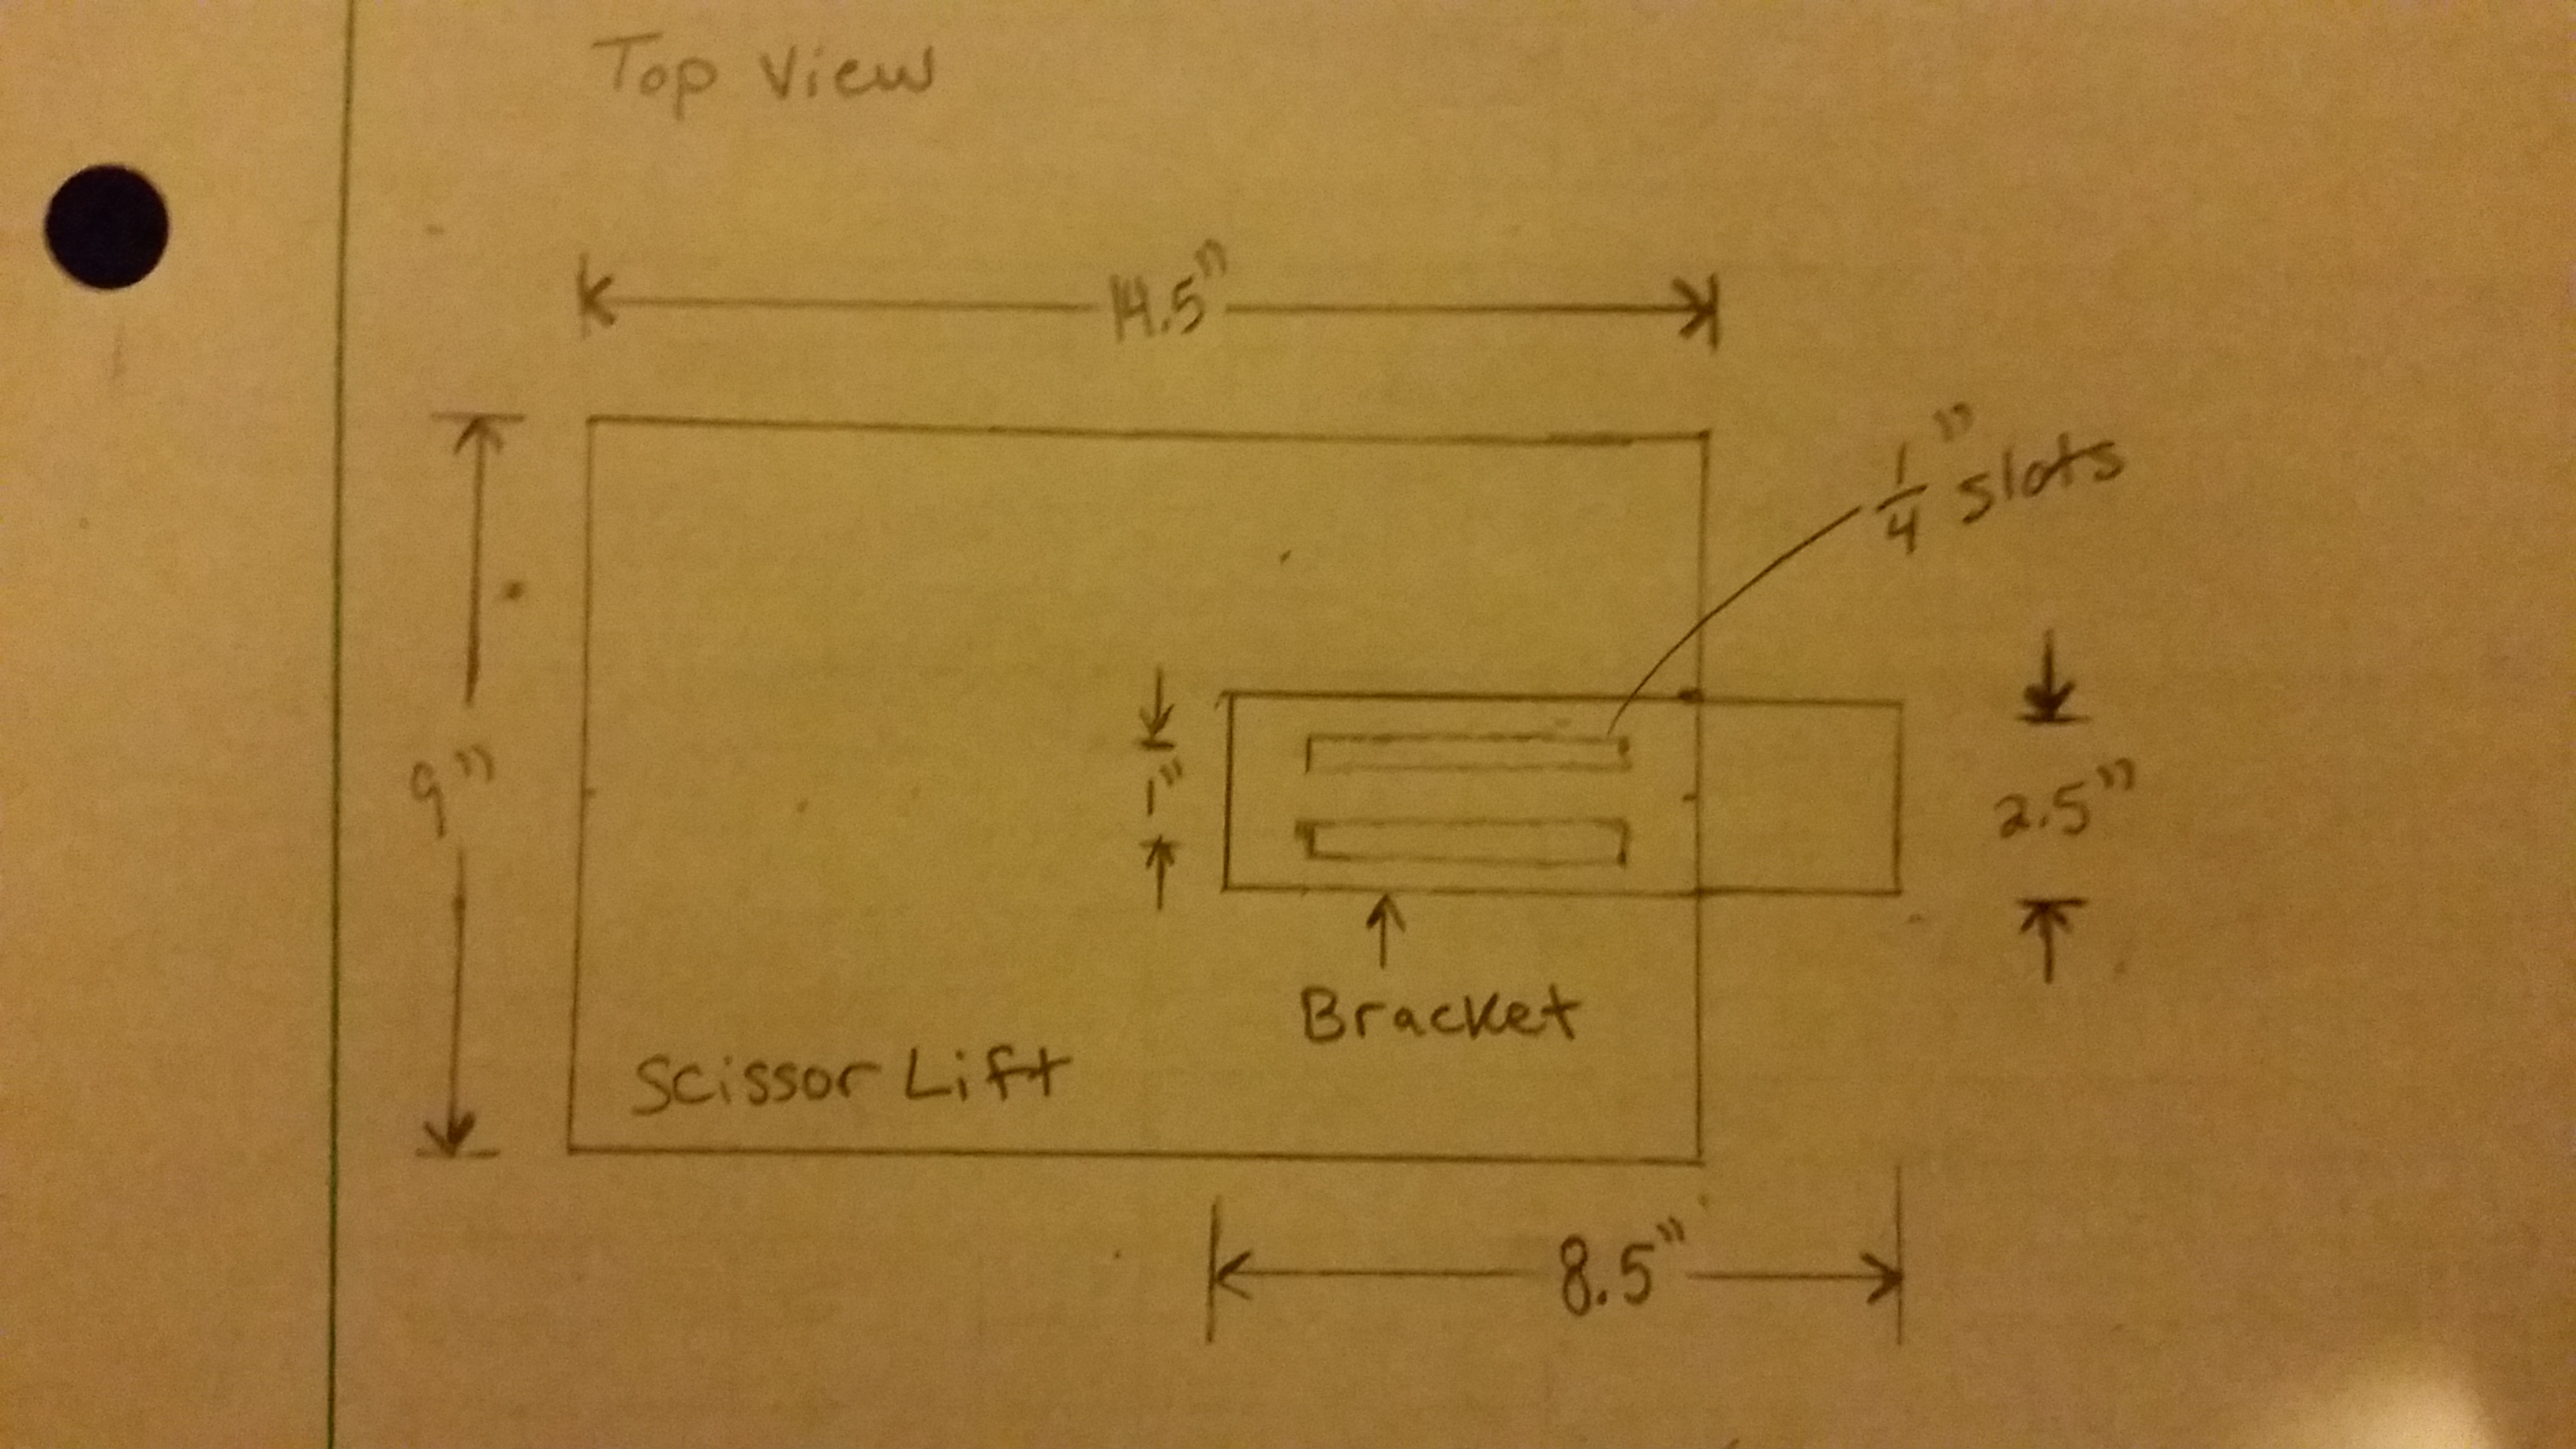 Top View
14.5"
1/4" slots
9"
1"
2.5"
Bracket
Scissor Lift
8.5"